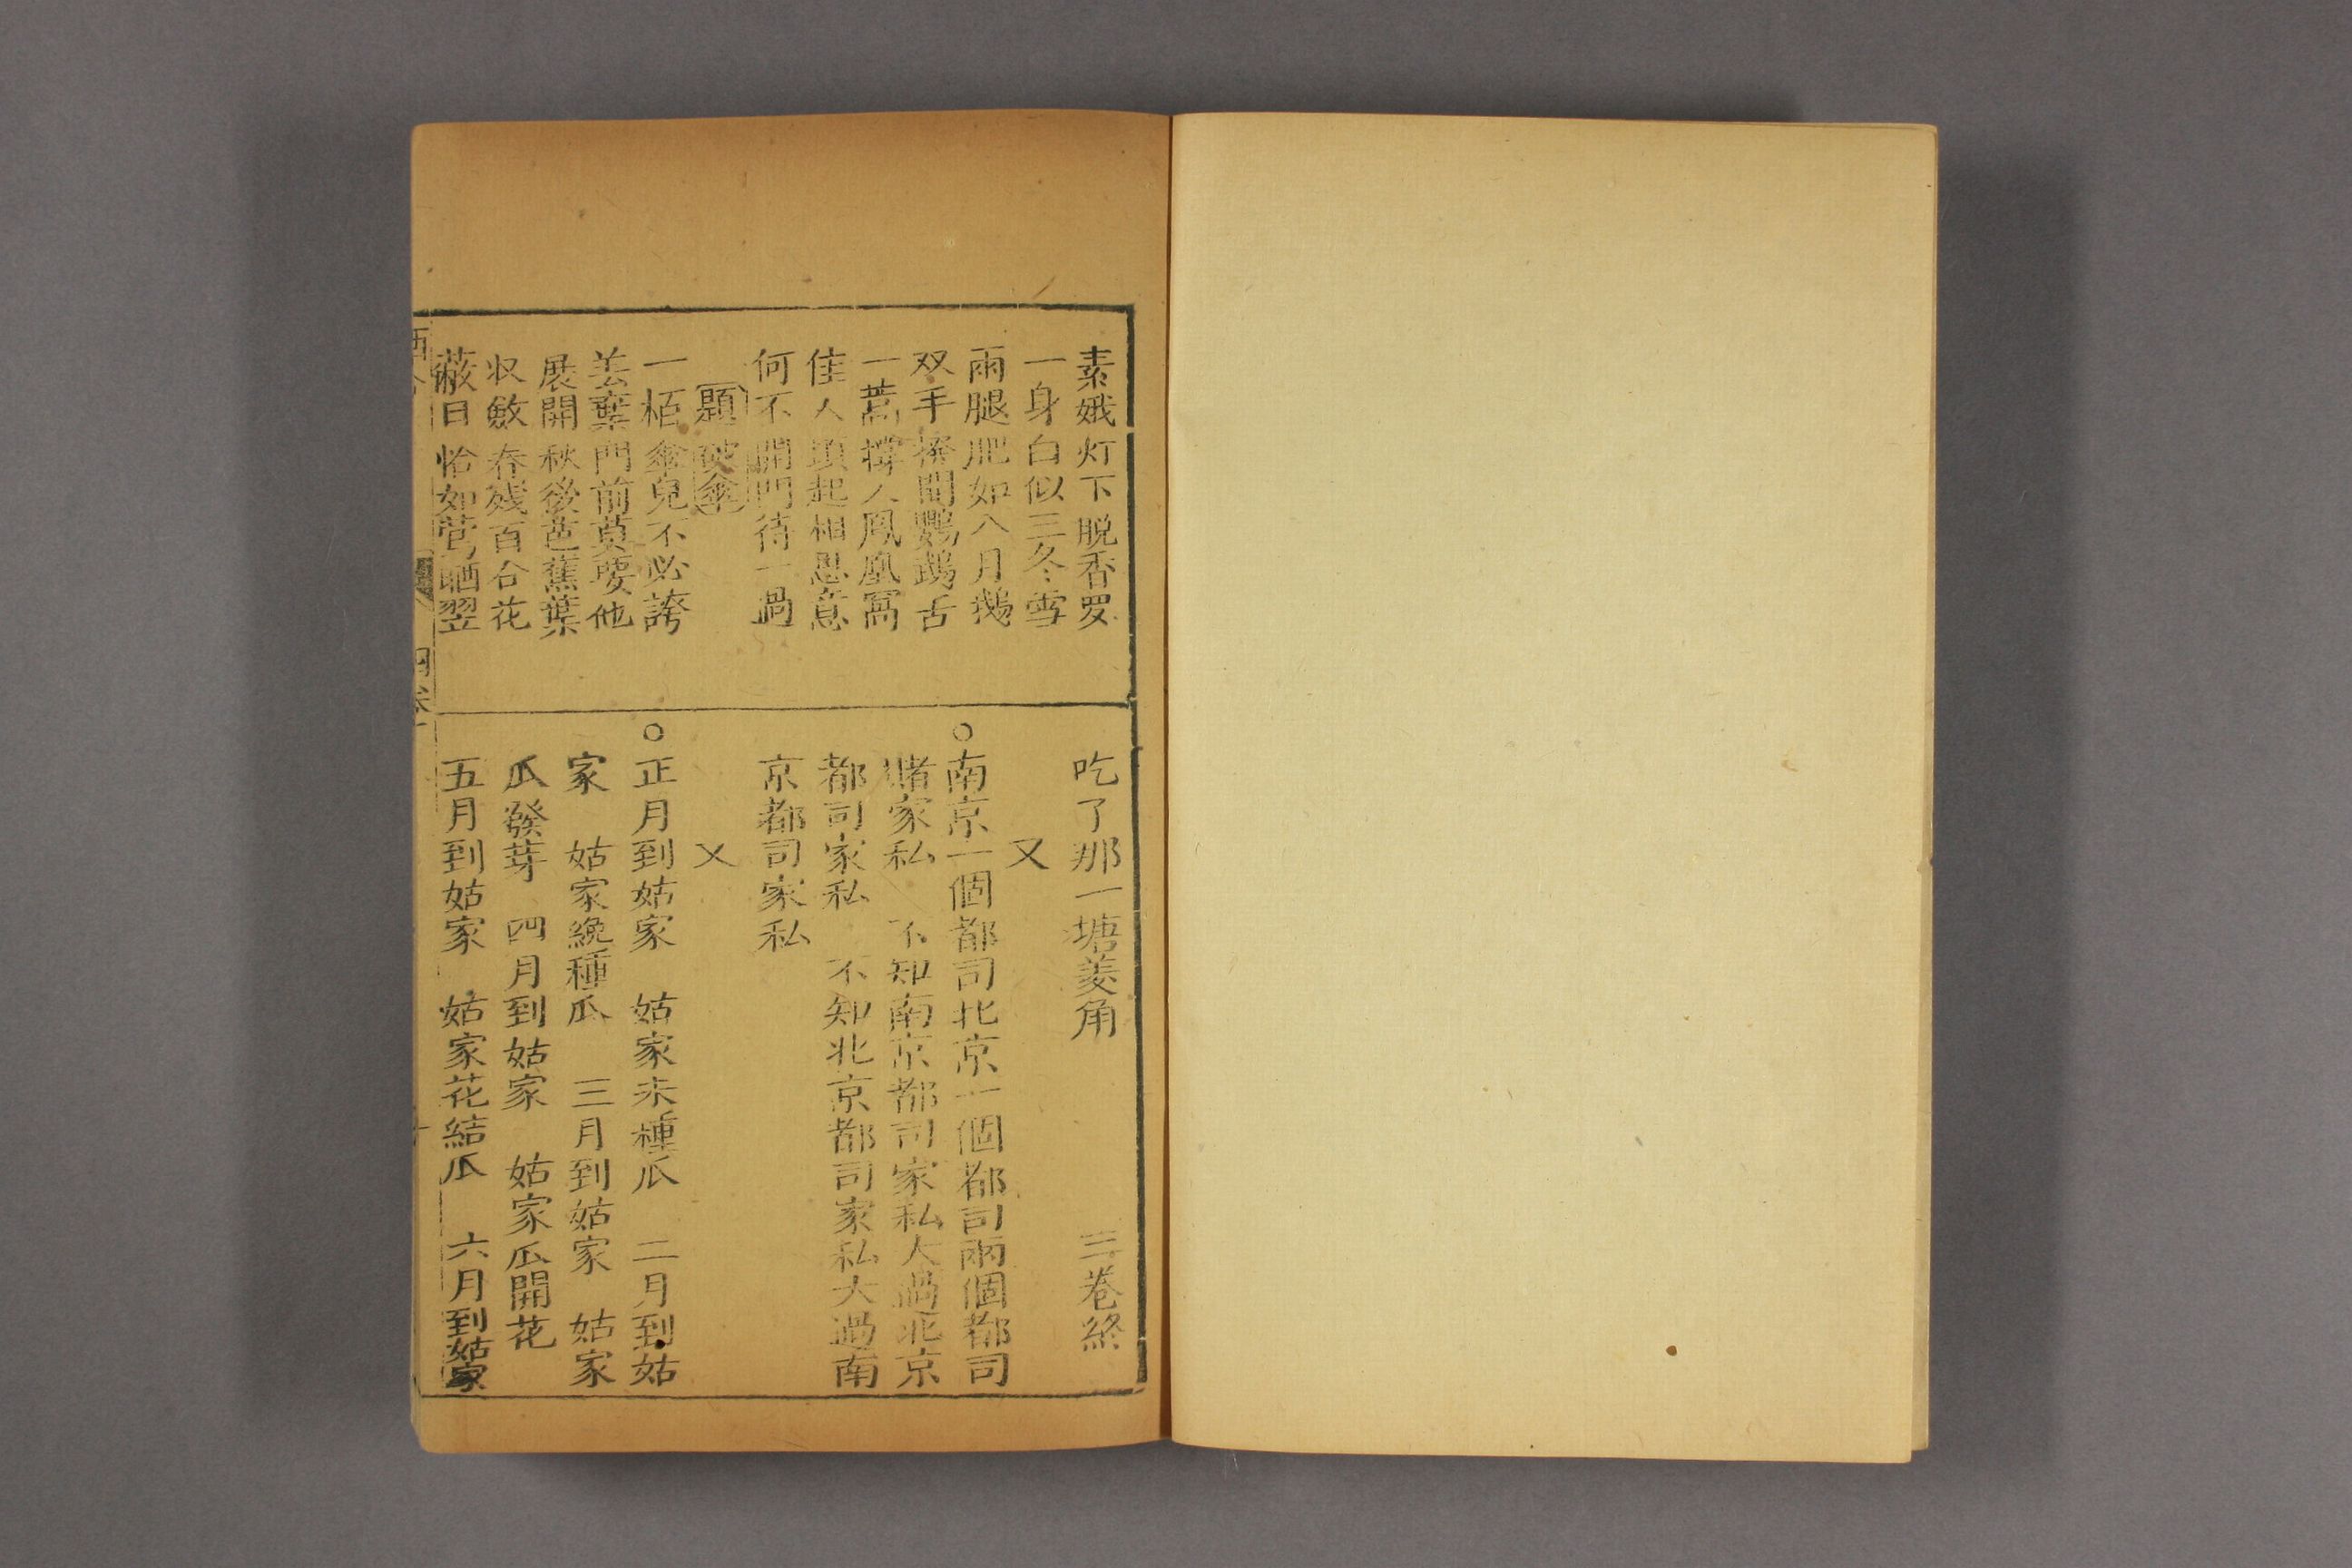 素娥灯下脱香罗
一身白似三冬雪
兩腿肥如八月鵝
双手撥開鸚鵡舌
一蒿撑入鳳凰窩
佳人頭起相思意
何不開門待一過
題破傘
一栢傘兒不必誇
丢棄門前莫要他
展開秋後芭蕉葉
収斂春殘百合花
蔽日恰如鶯晒翌
吃了那一塘菱角 三卷終
又
○南京一個都司北京一個都司兩個都司
賭家私 不知南京都司家私大過北京
都司家私 不知北京都司家私大過南
京都司家私
又
○正月到姑家 姑家未種瓜 二月到姑
家 姑家纔種瓜 三月到姑家 姑家
瓜發芽 四月到姑家 姑家瓜開花
五月到姑家 姑家花結瓜 六月到姑家